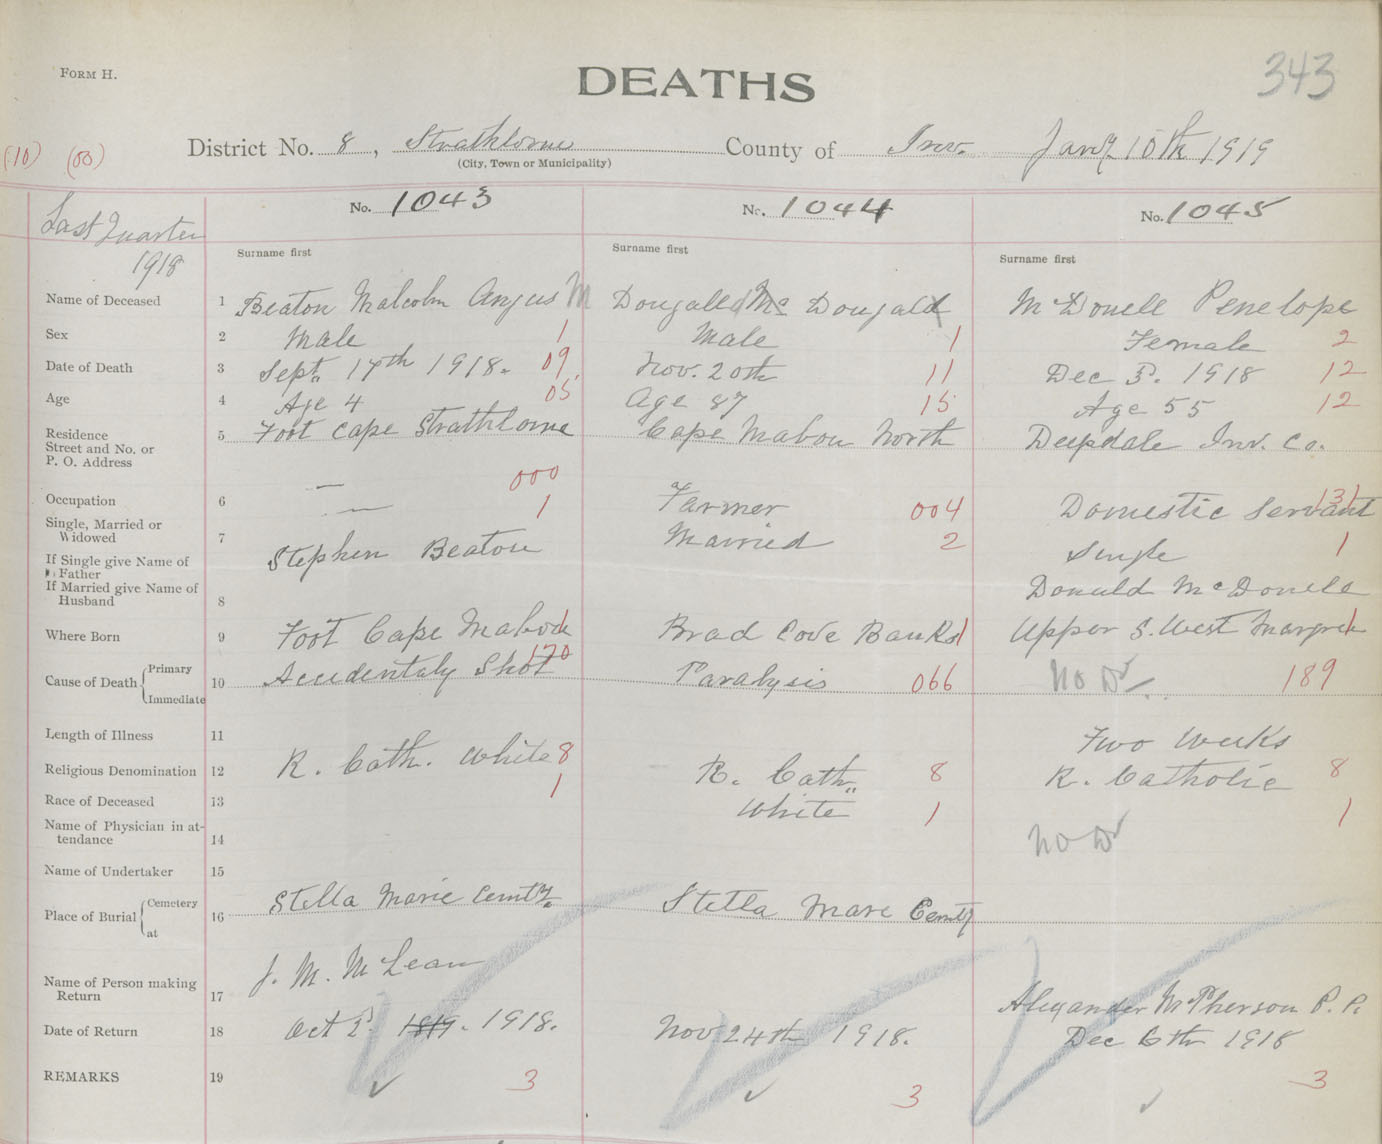 FORM H.
DEATHS
343
(10) (00)
District No. 8, Strathlorne County of Inv. Jany 10th 1919
(City, Town or Municipality)
Last Quarter
1918
No. 1043 No. 1044 No. 1045
Surname first Surname first Surname first
Name of Deceased 1 Beaton Malcolm Angus M Dougald Mc Dougald McDonell Penelope
Sex 2 Male 1 Male 1 Female 2
Date of Death 3 Sept. 17th 1918. 09 Nov. 20th 11 Dec 3d. 1918 12
Age 4 Age 4 05 Age 87 15 Age 55 12
Residence
Street and No. or
P. O. Address
5 Foot Cape Strathlorne Cape Mabou North Deepdale Inv. Co.
Occupation 6 — 000 Farmer 004 Domestic Servant 131
Single, Married or
Widowed
7 — 1 Married 2 Single 1
If Single give Name of
Father
If Married give Name of
Husband
8 Stephen Beaton Donald McDonell
Where Born 9 Foot Cape Mabou 1 Brad Cove Banks 1 Upper S. West Margree 1
Cause of Death Primary
Immediate
10 Accidentaly Shot 170 Paralysis 066 No Dr 189
Length of Illness 11 Two Weeks
Religious Denomination 12 R. Cath. White 8 R. Cath. 8 R. Catholic 8
Race of Deceased 13 1 White 1 1
Name of Physician in at-
tendance
14 No Dr
Name of Undertaker 15
Place of Burial Cemetery
at
16 Stella Marie Cemty. Stella Mare Cemty
Name of Person making
Return
17 J. M. McLean Alexander McPherson P. P.
Date of Return 18 Oct 2d. 1819. 1918. Nov 24th 1918. Dec 6th 1918
REMARKS 19 3 3 3